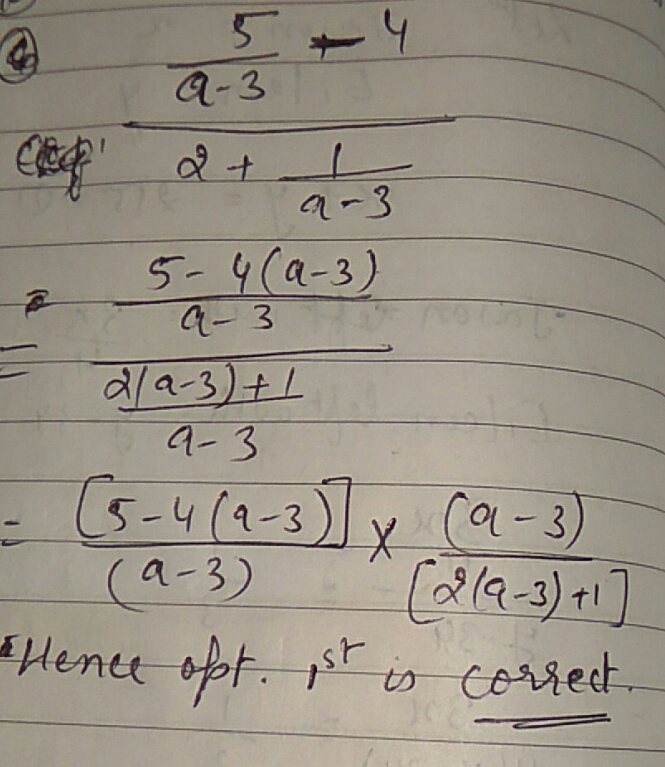 5/(a-3) - 4
2 + 1/(a-3)
= (5-4(a-3))/(a-3)
(2(a-3)+1)/(a-3)
= [5-4(a-3)]/(a-3) × (a-3)/[2(a-3)+1]
Hence opt. 1st is correct.